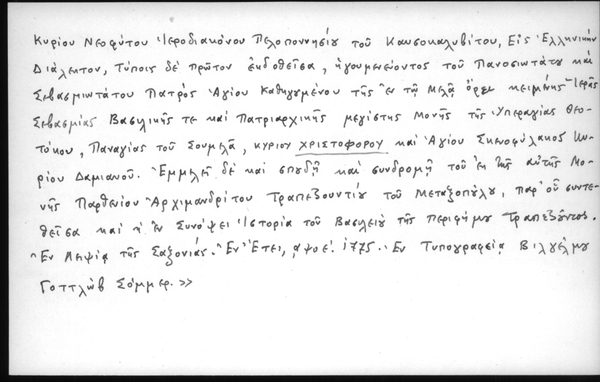 Κυρίου Νεοφύτου Ἱεροδιακόνου Πελοποννησίου τοῦ Καυσοκαλυβίτου, Εἰς Ἑλληνικὴν
Διάλεκτον, Τύποις δὲ πρῶτον ἐκδοθεῖσα, ἡγουμενεύοντος τοῦ Πανοσιωτάτου καὶ
Σεβασμιωτάτου Πατρὸς Ἁγίου Καθηγουμένου τῆς ἐν τῷ Μελᾷ ὄρει κειμένης Ἱερᾶς
Σεβασμίας Βασιλικῆς τε καὶ Πατριαρχικῆς μεγίστης Μονῆς τῆς Ὑπεραγίας Θεο-
τόκου, Παναγίας τοῦ Σουμελᾶ, κυρίου ΧΡΙΣΤΟΦΟΡΟΥ καὶ Ἁγίου Σκευοφύλακος Κυ-
ρίου Δαμιανοῦ. Ἐμμελεῖ δὲ καὶ σπουδῇ καὶ συνδρομῇ τοῦ ἐκ τῆς αὐτῆς Μο-
νῆς Παρθενίου Ἀρχιμανδρίτου Τραπεζουντίου τοῦ Μεταξοπούλου, παρ' οὗ συντε-
θεῖσα καὶ ἡ ἐν Συνόψει Ἱστορία τοῦ Βασιλείου τῆς περιφήμου Τραπεζοῦντος.
Ἐν Λειψίᾳ τῆς Σαξονίας. Ἐν Ἔτει, αψοε. 1775. Ἐν Τυπογραφείᾳ Βιλγέλμου
Γοττλὼβ Σόμμερ.>>